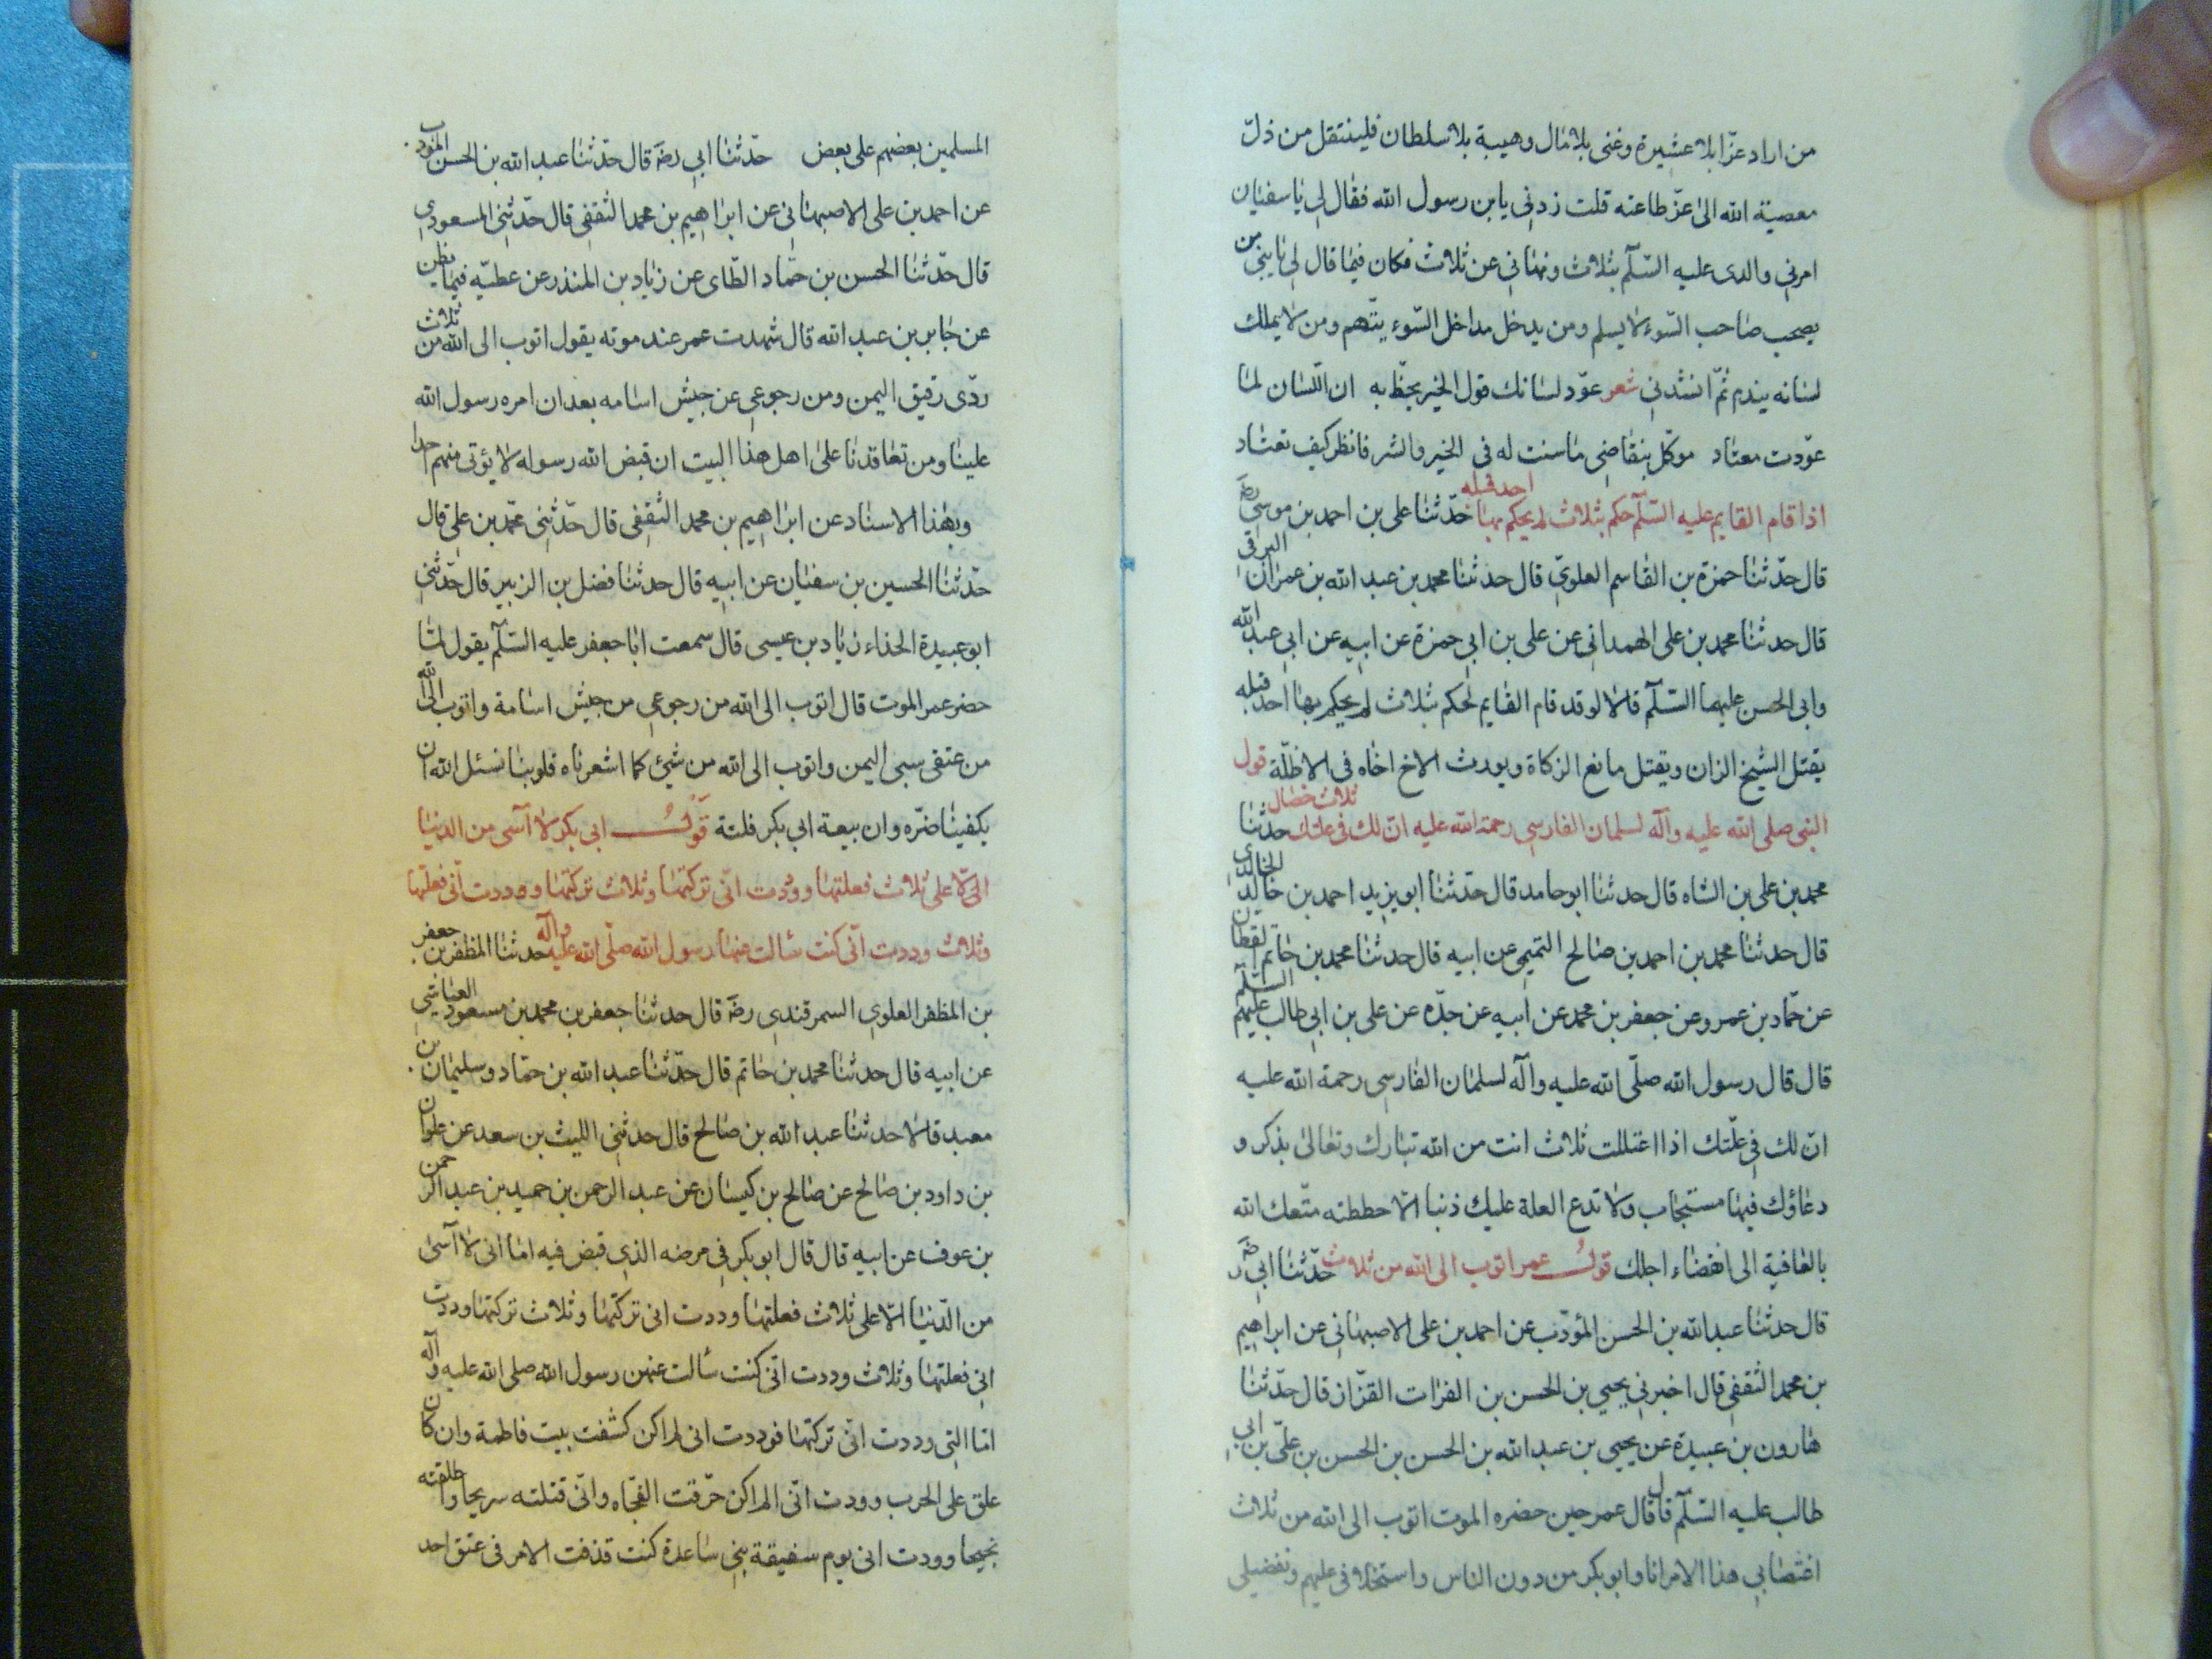 من اراد عزّا بلا عشيرة وغنى بلا مال وهيبة بلا سلطان فلينتقل من ذلّ
معصية الله الى عزّ طاعته قلت زدنى يا بن رسول الله فقال لى يا سفيان
امرنى والدى عليه السّلم بثلاث ونهانى عن ثلاث فكان فيما قال لى يا بنى من
يصحب صاحب السّوء لا يسلم ومن يدخل مداخل السّوء يتّهم ومن لا يملك
لسانه يندم ثمّ انشدنى شعر عوّد لسانك قول الخير تحظّ به ان اللّسان لما
عوّدت معتاد موكّل بتقاضى ما سننت له فى الخير والشر فانظر كيف تعتاد
اذا قام القايم عليه السّلم حكم بثلاث لم يحكم بها احد قبله حدّثنا على بن احمد بن موسى رضه
قال حدّثنا حمزة بن القاسم العلوى قال حدثنا محمد بن عبد الله بن عمران البرقى
قال حدثنا محمد بن على الهمدانى عن على بن ابى حمزة عن ابيه عن ابى عبد الله
وابى الحسن عليهما السّلم قالا لو قد قام القايم لحكم بثلاث لم يحكم بها احد قبله
يقتل الشيخ الزان ويقتل مانع الزكاة ويورث الاخ اخاه فى الاظلّة قول
النبى صلى الله عليه وآله لسلمان الفارسى رحمة الله عليه انّ لك فى علتك ثلاث خصال حدثنا
محمد بن على بن الشاه قال حدثنا ابو حامد قال حدّثنا ابو يزيد احمد بن خالد الخالدى
قال حدثنا محمد بن احمد بن صالح التميمى عن ابيه قال حدثنا محمد بن حاتم القطان
عن حمّاد بن عمرو عن جعفر بن محمد عن ابيه عن جدّه عن على بن ابى طالب عليهم السّلم
قال قال رسول الله صلّى الله عليه وآله لسلمان الفارسى رحمة الله عليه
انّ لك فى علّتك اذا اعتللت ثلاث انت من الله تبارك وتعالى بذكر و
دعاؤك فيها مستجاب ولا تدع العلة عليك ذنبا الّا حططته متّعك الله
بالعافية الى انقضاء اجلك قول عمر اتوب الى الله من ثلاث حدّثنا ابى رضه
قال حدثنا عبد الله بن الحسن المؤدّب عن احمد بن على الاصبهانى عن ابراهيم
بن محمد الثقفى قال اخبرنى يحيى بن الحسن بن الفرات القزّاز قال حدّثنا
هارون بن عبيدة عن يحيى بن عبد الله بن الحسن بن الحسن بن علىّ بن ابى
طالب عليه السّلم قال قال عمر حين حضره الموت اتوب الى الله من ثلاث
اغتصابى هذا الامر انا وابو بكر من دون الناس واستخلافى عليهم وتفضيلى
المسلمين بعضهم على بعض حدّثنا ابى رضه قال حدّثنا عبد الله بن الحسن المؤدب
عن احمد بن على الاصبهانى عن ابراهيم بن محمد الثقفى قال حدّثنى المسعودى
قال حدّثنا الحسن بن حمّاد الطّاى عن زياد بن المنذر عن عطيّه فيما يظن
عن جابر بن عبد الله قال شهدت عمر عند موته يقول اتوب الى الله من ثلاث
ردّى رقيق اليمن ومن رجوعى عن جيش اسامه بعد ان امره رسول الله
علينا ومن تعاقدنا على اهل هذا البيت ان قبض الله رسوله لا يؤتى منهم احدا
وبهذا الاسناد عن ابراهيم بن محمد الثقفى قال حدّثنى محمّد بن على قال
حدّثنا الحسين بن سفيان عن ابيه قال حدثنا فضل بن الزبير قال حدّثنى
ابو عبيدة الحذاء زياد بن عيسى قال سمعت ابا جعفر عليه السّلم يقول لمّا
حضر عمر الموت قال اتوب الى الله من رجوعى من جيش اسامة واتوب الى الله
من عتقى سبى اليمن واتوب الى الله من شئ كما اشعرناه قلوبنا نسئل الله ان
يكفينا ضرّه وان بيعة ابى بكر فلتة قول ابى بكر لا آسى من الدنيا
الّا على ثلاث فعلتها ووددت انّى تركتها وثلاث تركتها ووددت انّى فعلتها
وثلاث وددت انّى كنت سالت عنها رسول الله صلّى الله عليه وآله حدثنا المظفر بن جعفر
بن المظفر العلوى السمرقندى رضه قال حدثنا جعفر بن محمد بن مسعود العياشى
عن ابيه قال حدثنا محمد بن حاتم قال حدّثنا عبد الله بن حمّاد وسليمان بن
معبد قالا حدثنا عبد الله بن صالح قال حدثنى الليث بن سعد عن علوان
بن داود بن صالح عن صالح بن كيسان عن عبد الرحمن بن حميد بن عبد الرحمن
بن عوف عن ابيه قال قال ابو بكر فى مرضه الذى قبض فيه اما انى لا آسى
من الدّنيا الّا على ثلاث فعلتها وددت انى تركتها وثلاث تركتها وددت
انى فعلتها وثلاث وددت انّى كنت سألت عنهن رسول الله صلى الله عليه وآله
امّا التى وددت انّى تركتها فوددت انى لم اكن كشفت بيت فاطمة وان كان
علق على الحرب ووددت انّى لم اكن حرّقت الفجاه وانّى قتلته سريحا واطلقته
نجيحا وودت انى يوم سفيقة بنى ساعدة كنت قذفت الامر فى عنق احد